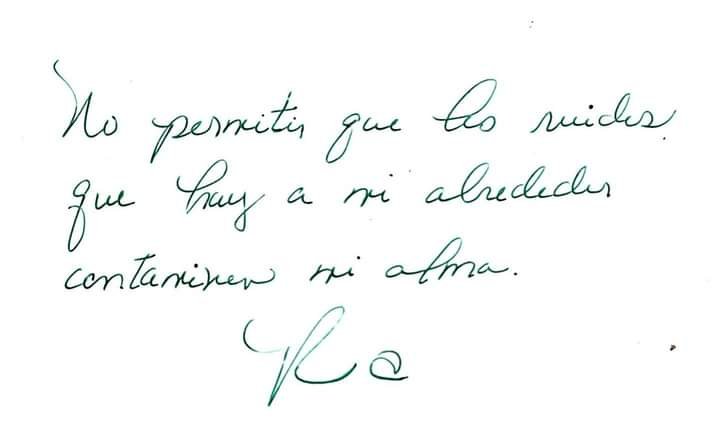 No permitir que los ruidos
que hay a mi alrededor
contaminen mi alma.
Ra